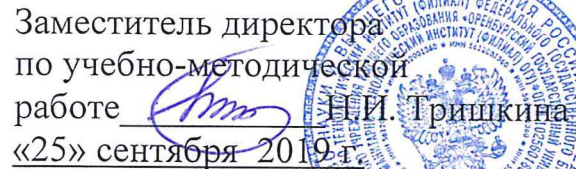 Заместитель директора
по учебно-методической
работе Н.И. Тришкина
«25» сентября 2019 г.